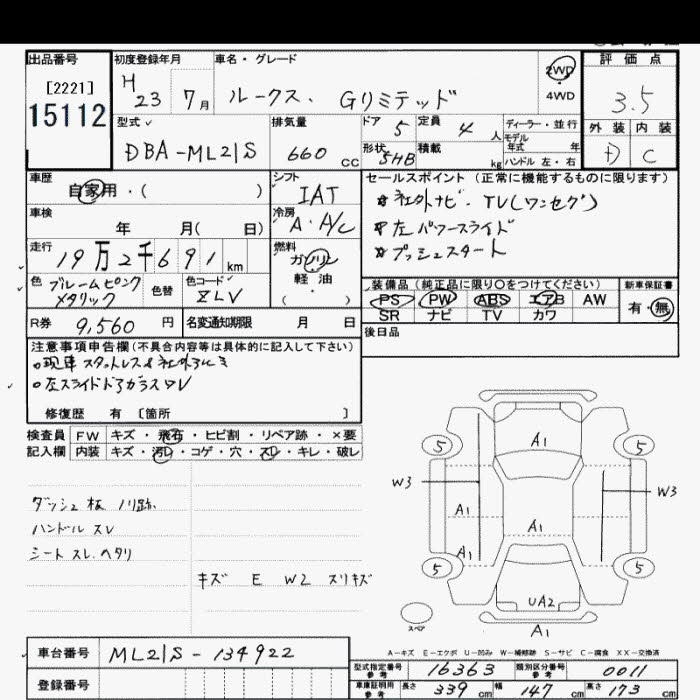 出品番号
[2221]
15112
初度登録年月
H 23 7月
車名・グレード
ルークス. Gリミテッド
2WD
4WD
評価点
3.5
外装 内装
D C
型式
DBA-ML21S
排気量
660 cc
ドア 5
定員 4 人
形状 5HB
積載 kg
ディーラー・並行
モデル年式 年
ハンドル 左・右
車歴
自家用・( )
シフト
IAT
冷房
A・A/C
車検
年 月( 日)
走行
19万2千691 km
燃料
ガソリン
軽油
( )
色
ブレームピンク
メタリック
色替
色コード
ZLV
R券 9,560 円
名変通知期限 月 日
セールスポイント (正常に機能するものに限ります)
社外ナビ. TV(ワンセグ)
左パワースライド
プッシュスタート
装備品 (純正品に限り〇をつけてください)
PS PW ABS エアB AW
SR ナビ TV カワ
新車保証書
有・無
後日品
注意事項申告欄(不具合内容等は具体的に記入して下さい)
現車スタットレス&社外アルミ
左スライドドアガラスワレ
修復歴 有 〔箇所 〕
検査員記入欄
FW キズ・飛石・ヒビ割・リペア跡・×要
内装 キズ・汚レ・コゲ・穴・スレ・キレ・破レ
ダッシュ板 ノリ跡.
ハンドル スレ
シート スレ.ヘタリ
キズ E W2 スリキズ
5 A1 5
W3 W3
A1
A1
A1
5 5
UA2
スペア
A1
A-キズ E-エクボ U-凹み W-補修跡 S-サビ C-腐食 XX-交換済
車台番号 ML21S-134922
登録番号
型式指定番号 参考 16363
類別区分番号 参考 0011
車庫証明用 参考 長さ 339 cm 幅 147 cm 高さ 173 cm